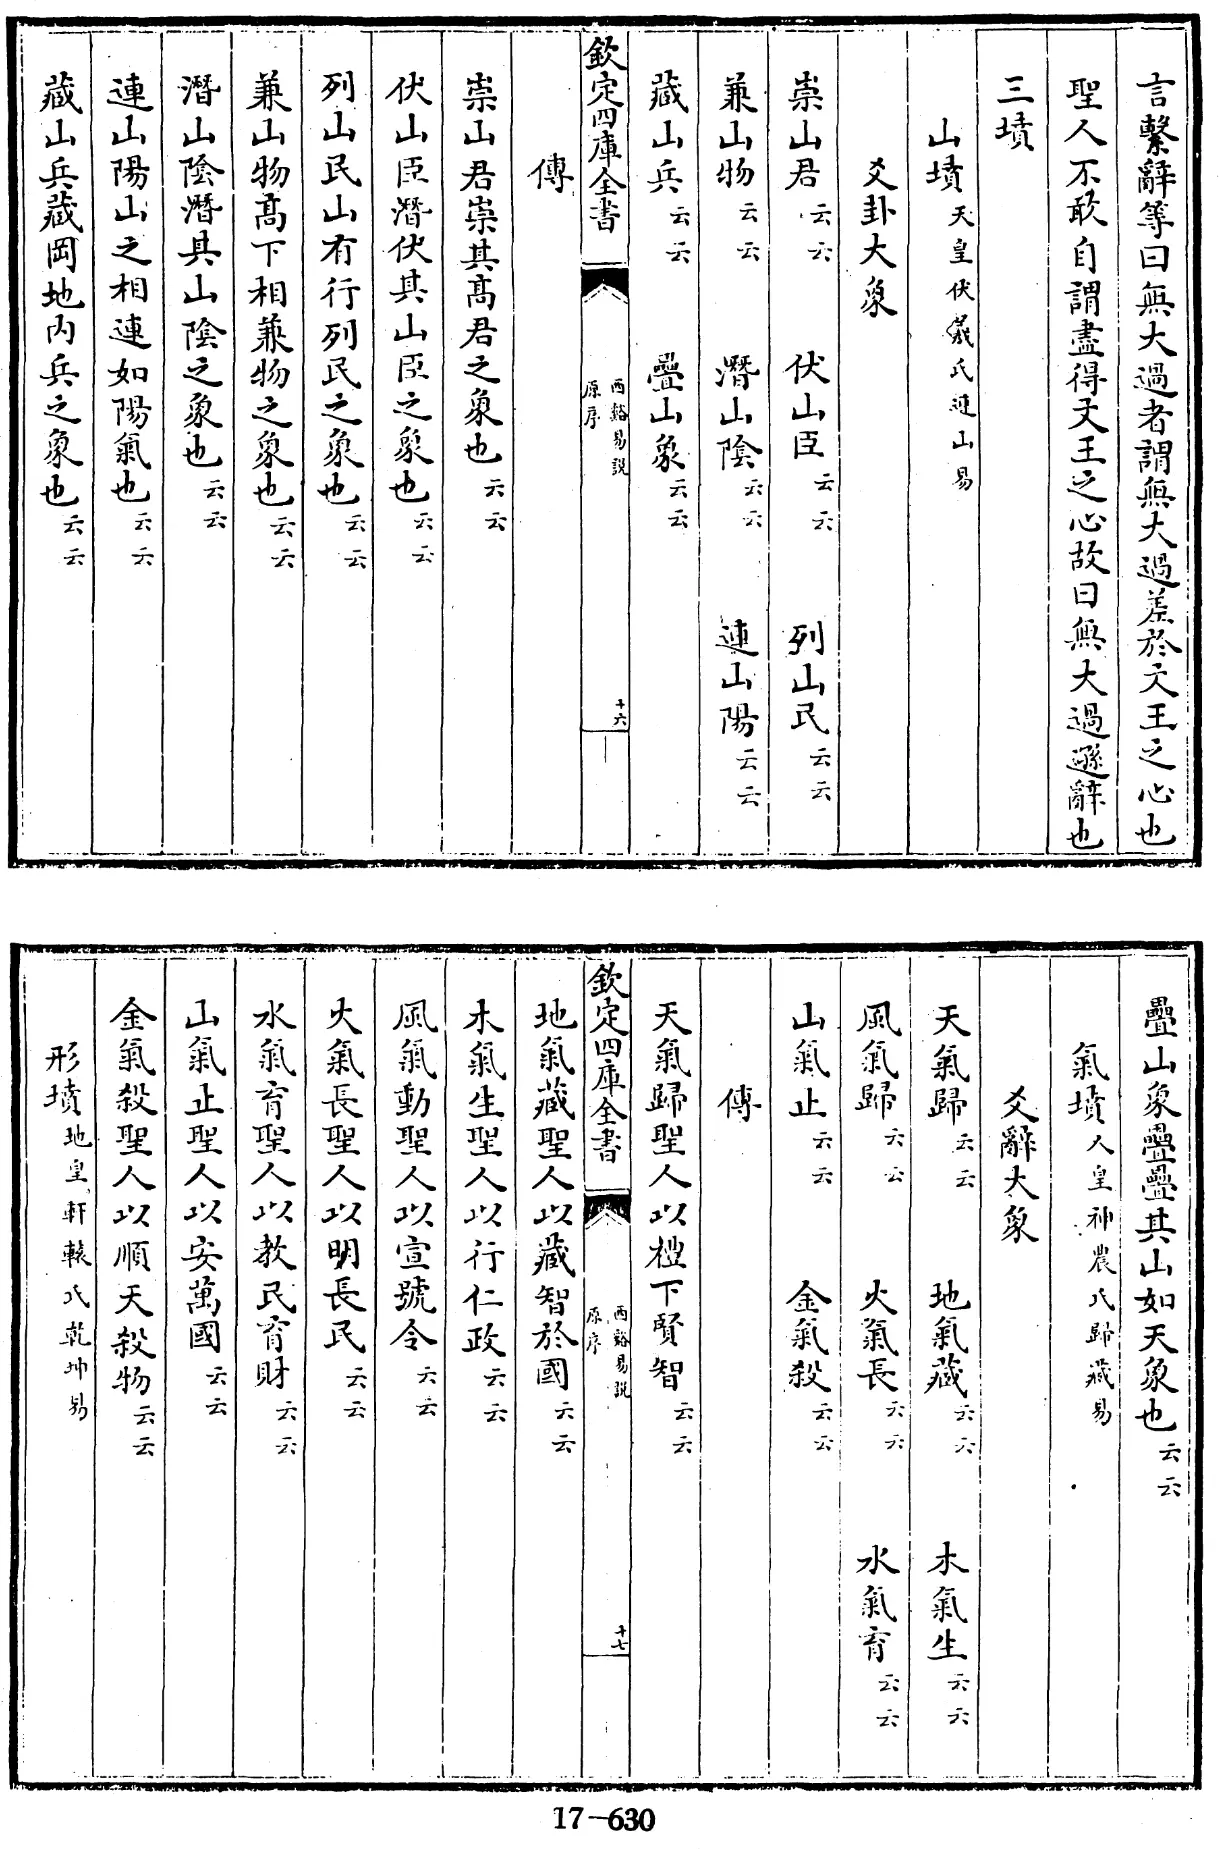 言繫辭等曰無大過者謂無大過差於文王之心也
聖人不敢自謂盡得文王之心故曰無大過遜辭也
三墳
山墳天皇伏羲氏連山易
爻卦大象
崇山君云云 伏山臣云云 列山民云云
兼山物云云 潛山陰云云 連山陽云云
藏山兵云云 疊山象云云
欽定四庫全書 西谿易説 原序 十六
傳
崇山君崇其高君之象也云云
伏山臣潛伏其山臣之象也云云
列山民山有行列民之象也云云
兼山物高下相兼物之象也云云
潛山陰潛其山陰之象也云云
連山陽山之相連如陽氣也云云
藏山兵藏岡地内兵之象也云云
疊山象疊疊其山如天象也云云
氣墳人皇神農氏歸藏易
爻辭大象
天氣歸云云 地氣藏云云 木氣生云云
風氣歸云云 火氣長云云 水氣育云云
山氣止云云 金氣殺云云
傳
天氣歸聖人以禮下賢智云云
欽定四庫全書 西谿易説 原序 十七
地氣藏聖人以藏智於國云云
木氣生聖人以行仁政云云
風氣動聖人以宣號令云云
火氣長聖人以明長民云云
水氣育聖人以教民育財云云
山氣止聖人以安萬國云云
金氣殺聖人以順天殺物云云
形墳地皇軒轅氏乾坤易
17—630